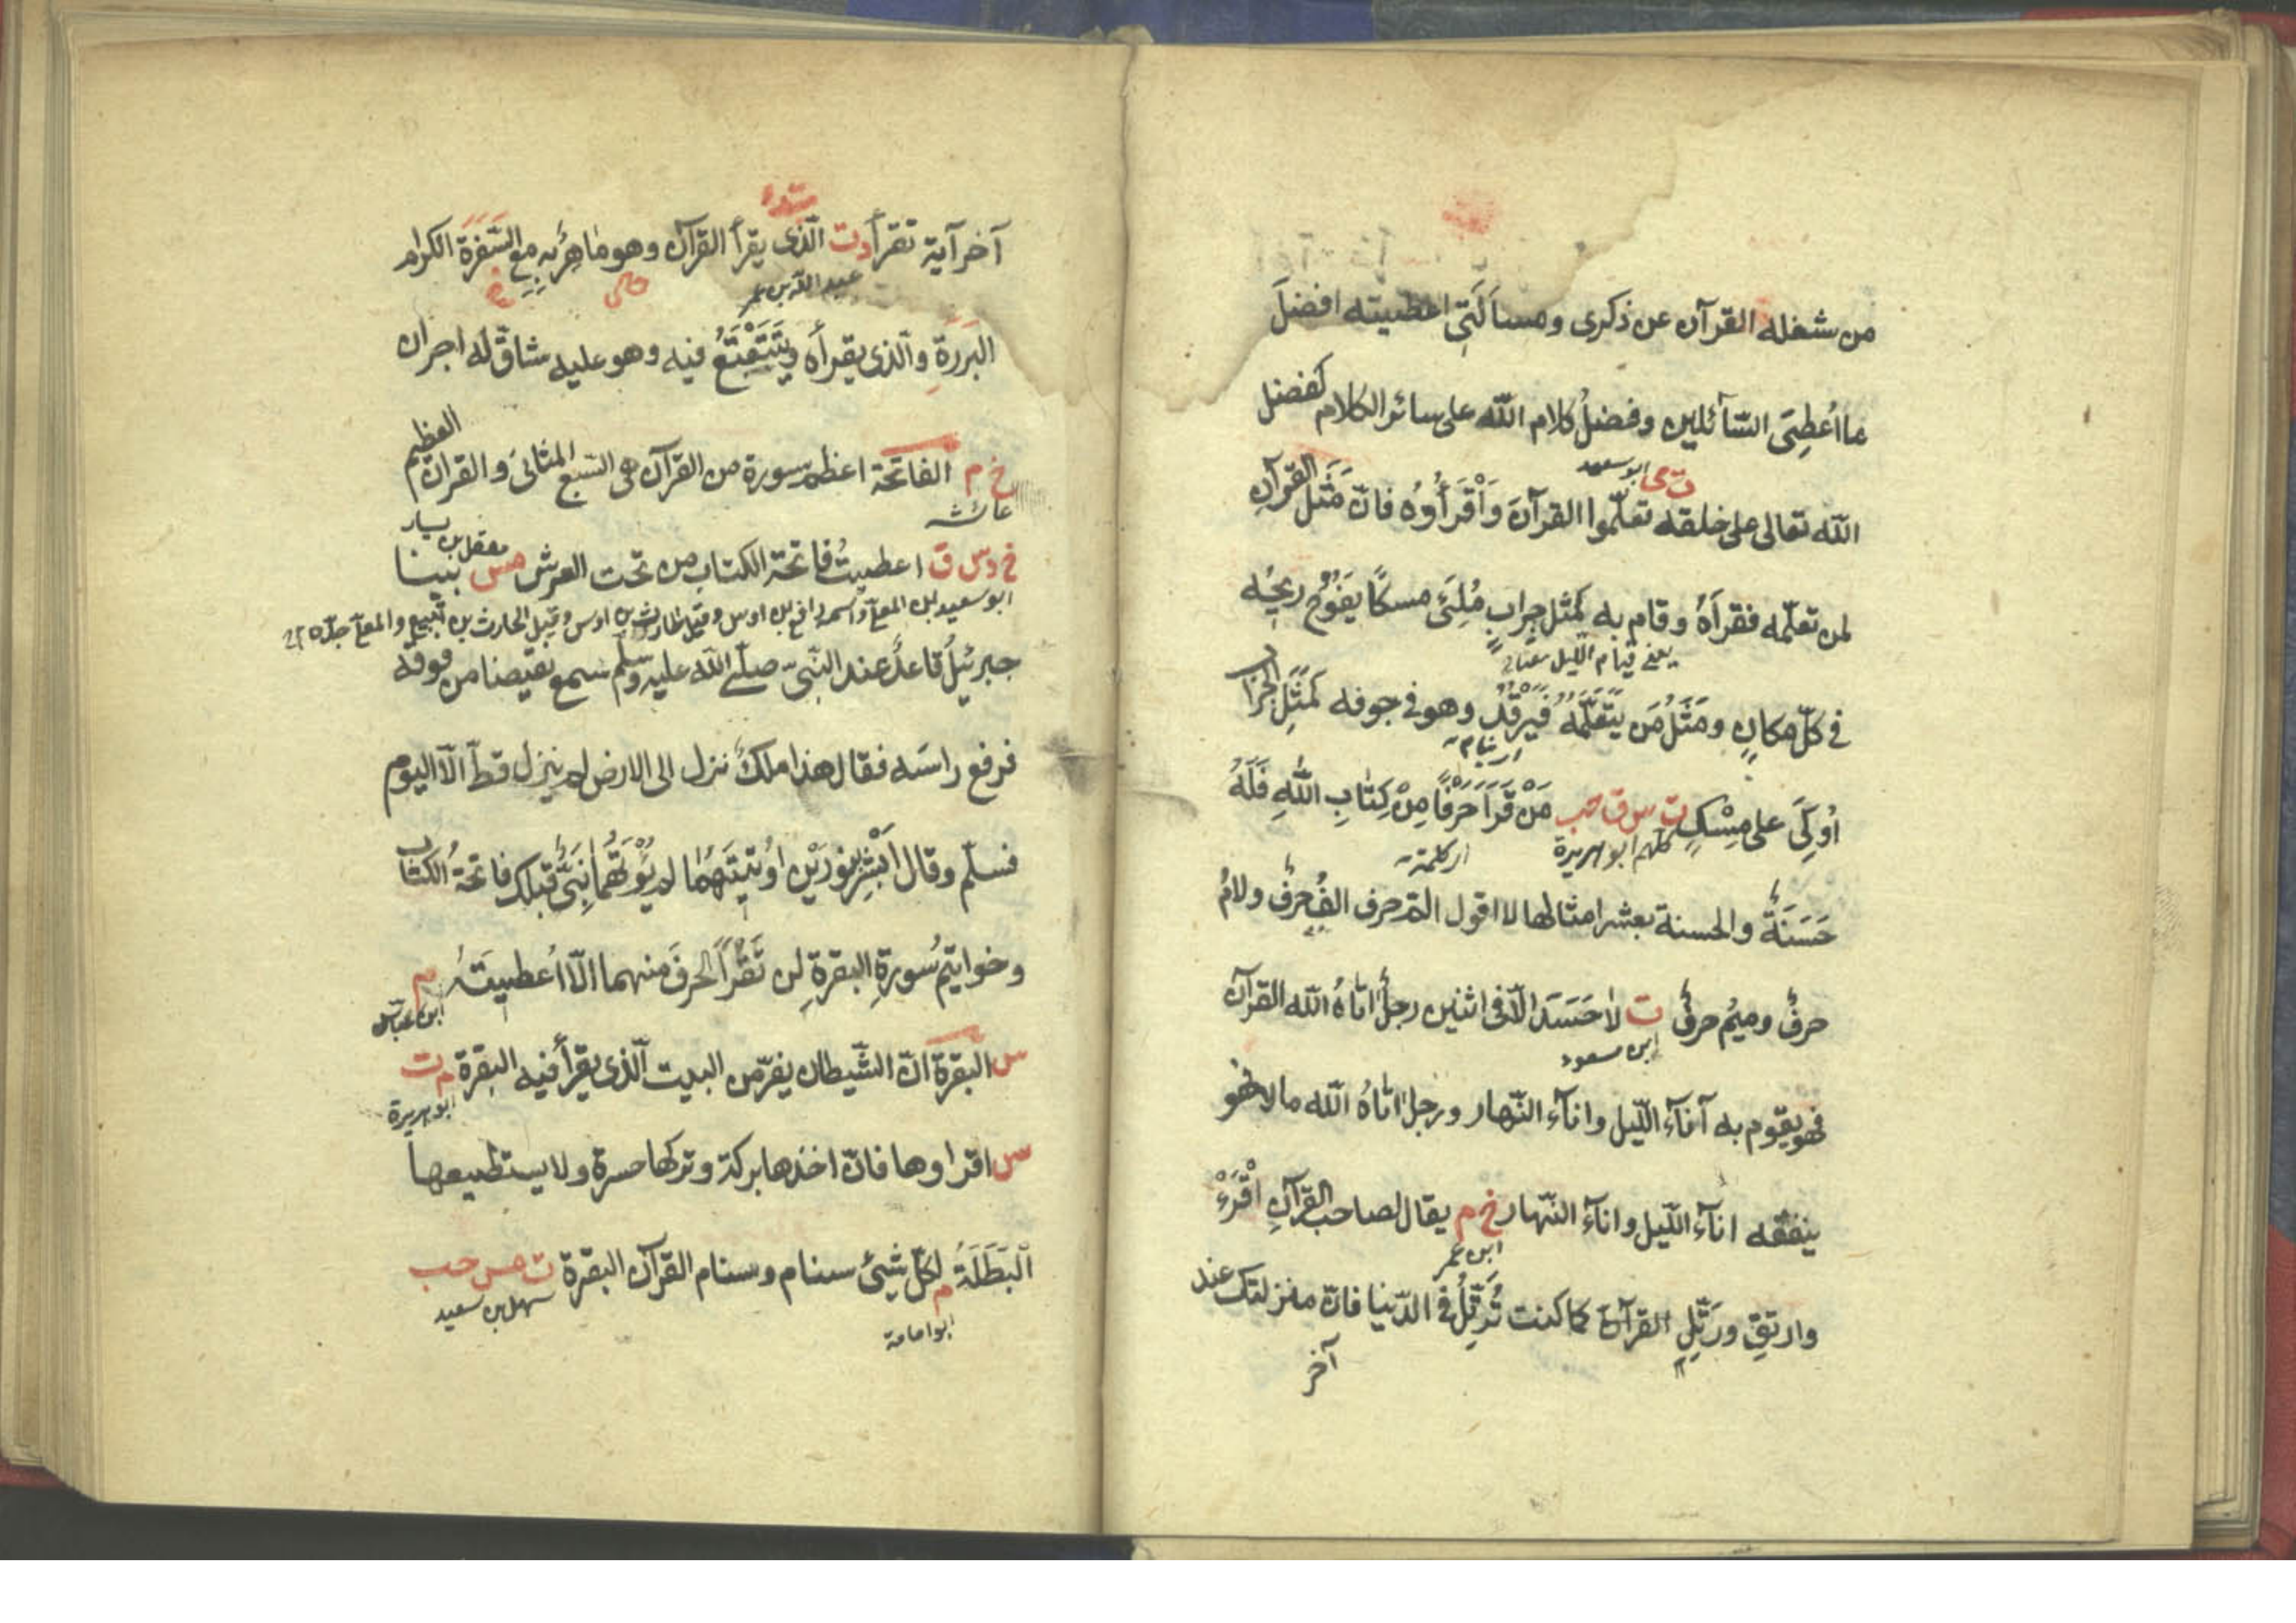 من شغله القرآن عن ذكرى ومسألتى اعطيته افضل
ما اُعطِىَ السّآئلين وفضلُ كلام اللّه على سائر الكلام كفضل
ت ى ابو سعيد
اللّه تعالى على خلقه تعلّموا القرآن وَاقْرَأُوهُ فانّ مَثَل القرآنِ
لمن تعلّمه فقرأهُ وقام به كمثل جِرابٍ مُلِئَ مسكًا يَفُوْحُ ريحُه
يعنى قيام الليل
فى كلّ مكانٍ ومَثَلُ مَن يَتَعَلَّمُهُ فَيَرْقُدُ وهو فى جوفه كَمَثَلِ الجراب
اى ينام
اُوكِىَ على مِسْكٍ ت س ق حب مَنْ قَرَأَ حَرْفًا مِنْ كِتٰابِ اللّٰهِ فَلَهُ
كلهم ابو هريرة اى كلمة
حَسَنَةٌ والحسنة بعشر امثالها لا اقول الٓمٓ حرف الفٌ حرفٌ ولامٌ
حرفٌ وميمٌ حرفٌ ت لاٰ حَسَدَ الّا فى اثنين رجلٌ اٰتاهُ اللّه القرآن
ابن مسعود
فهو يقوم به آنآء اللّيل وانآء النّهار ورجل اٰتاهُ اللّه مالا فهو
ينفقه انآء اللّيل وانآء النّهار خ م يقال لصاحب القرآنِ اقْرَءْ
ابن عمر
وارتقِ ورَتِّلِ القرآنَ كما كنت تُرَتِّلُ فى الدّنيا فانّ منزلتك عند
آخر
آخر آية تقرأ د ت الّذى يقرأ القرآن وهو مٰاهِرٌ به مع السَّفَرَةِ الكرام
عبد اللّه بن عمر
البَرَرَةِ والّذى يقرأه ويَتَتَعْتَعُ فيه وهو عليه شاقّ له اجران
خ م الفاتحة اعظم سورة من القرآن هى السّبع المثانى والقران العظيم
عائشه
خ د س ق اعطيتُ فاتحة الكتاب من تحت العرش مس بينا
معقل بن يسار
ابو سعيد بن المعلّٰى واسمه رافع بن اوس وقيل الحارث بن اوس وقيل الحارث بن نفيع والمعلّٰى جدّه
جبرئيلُ قاعدٌ عند النّبىّ صلّى اللّه عليه وسلّم سمع نقيضا من فوقه
فرفع راسَه فقال هذا ملكٌ نزل الى الارض لم ينزل قطّ الّا اليوم
فسلّم وقال اَبْشِرْ بنورَيْن اُوتيتَهُمٰا لم يُؤْتَهُمٰا نَبِىٌّ قبلك فاتحةُ الكتاب
وخواتيم سُورةِ البقرةِ لن تَقْرَأَ الحرفَ منهما الّا اُعطيتَهُ م
ابن عباس
س البقرة انّ الشّيطان يفرّ من البيت الّذى يقرأ فيه البقرة م ت
ابو هريرة
س اقراوها فانّ اخذها بركة وتركها حسرة ولا يستطيعها
الْبَطَلَةُ م لكلّ شىءٍ سنام وسنام القرآن البقرة ت مس حب
سهل بن سعيد
ابو امامة